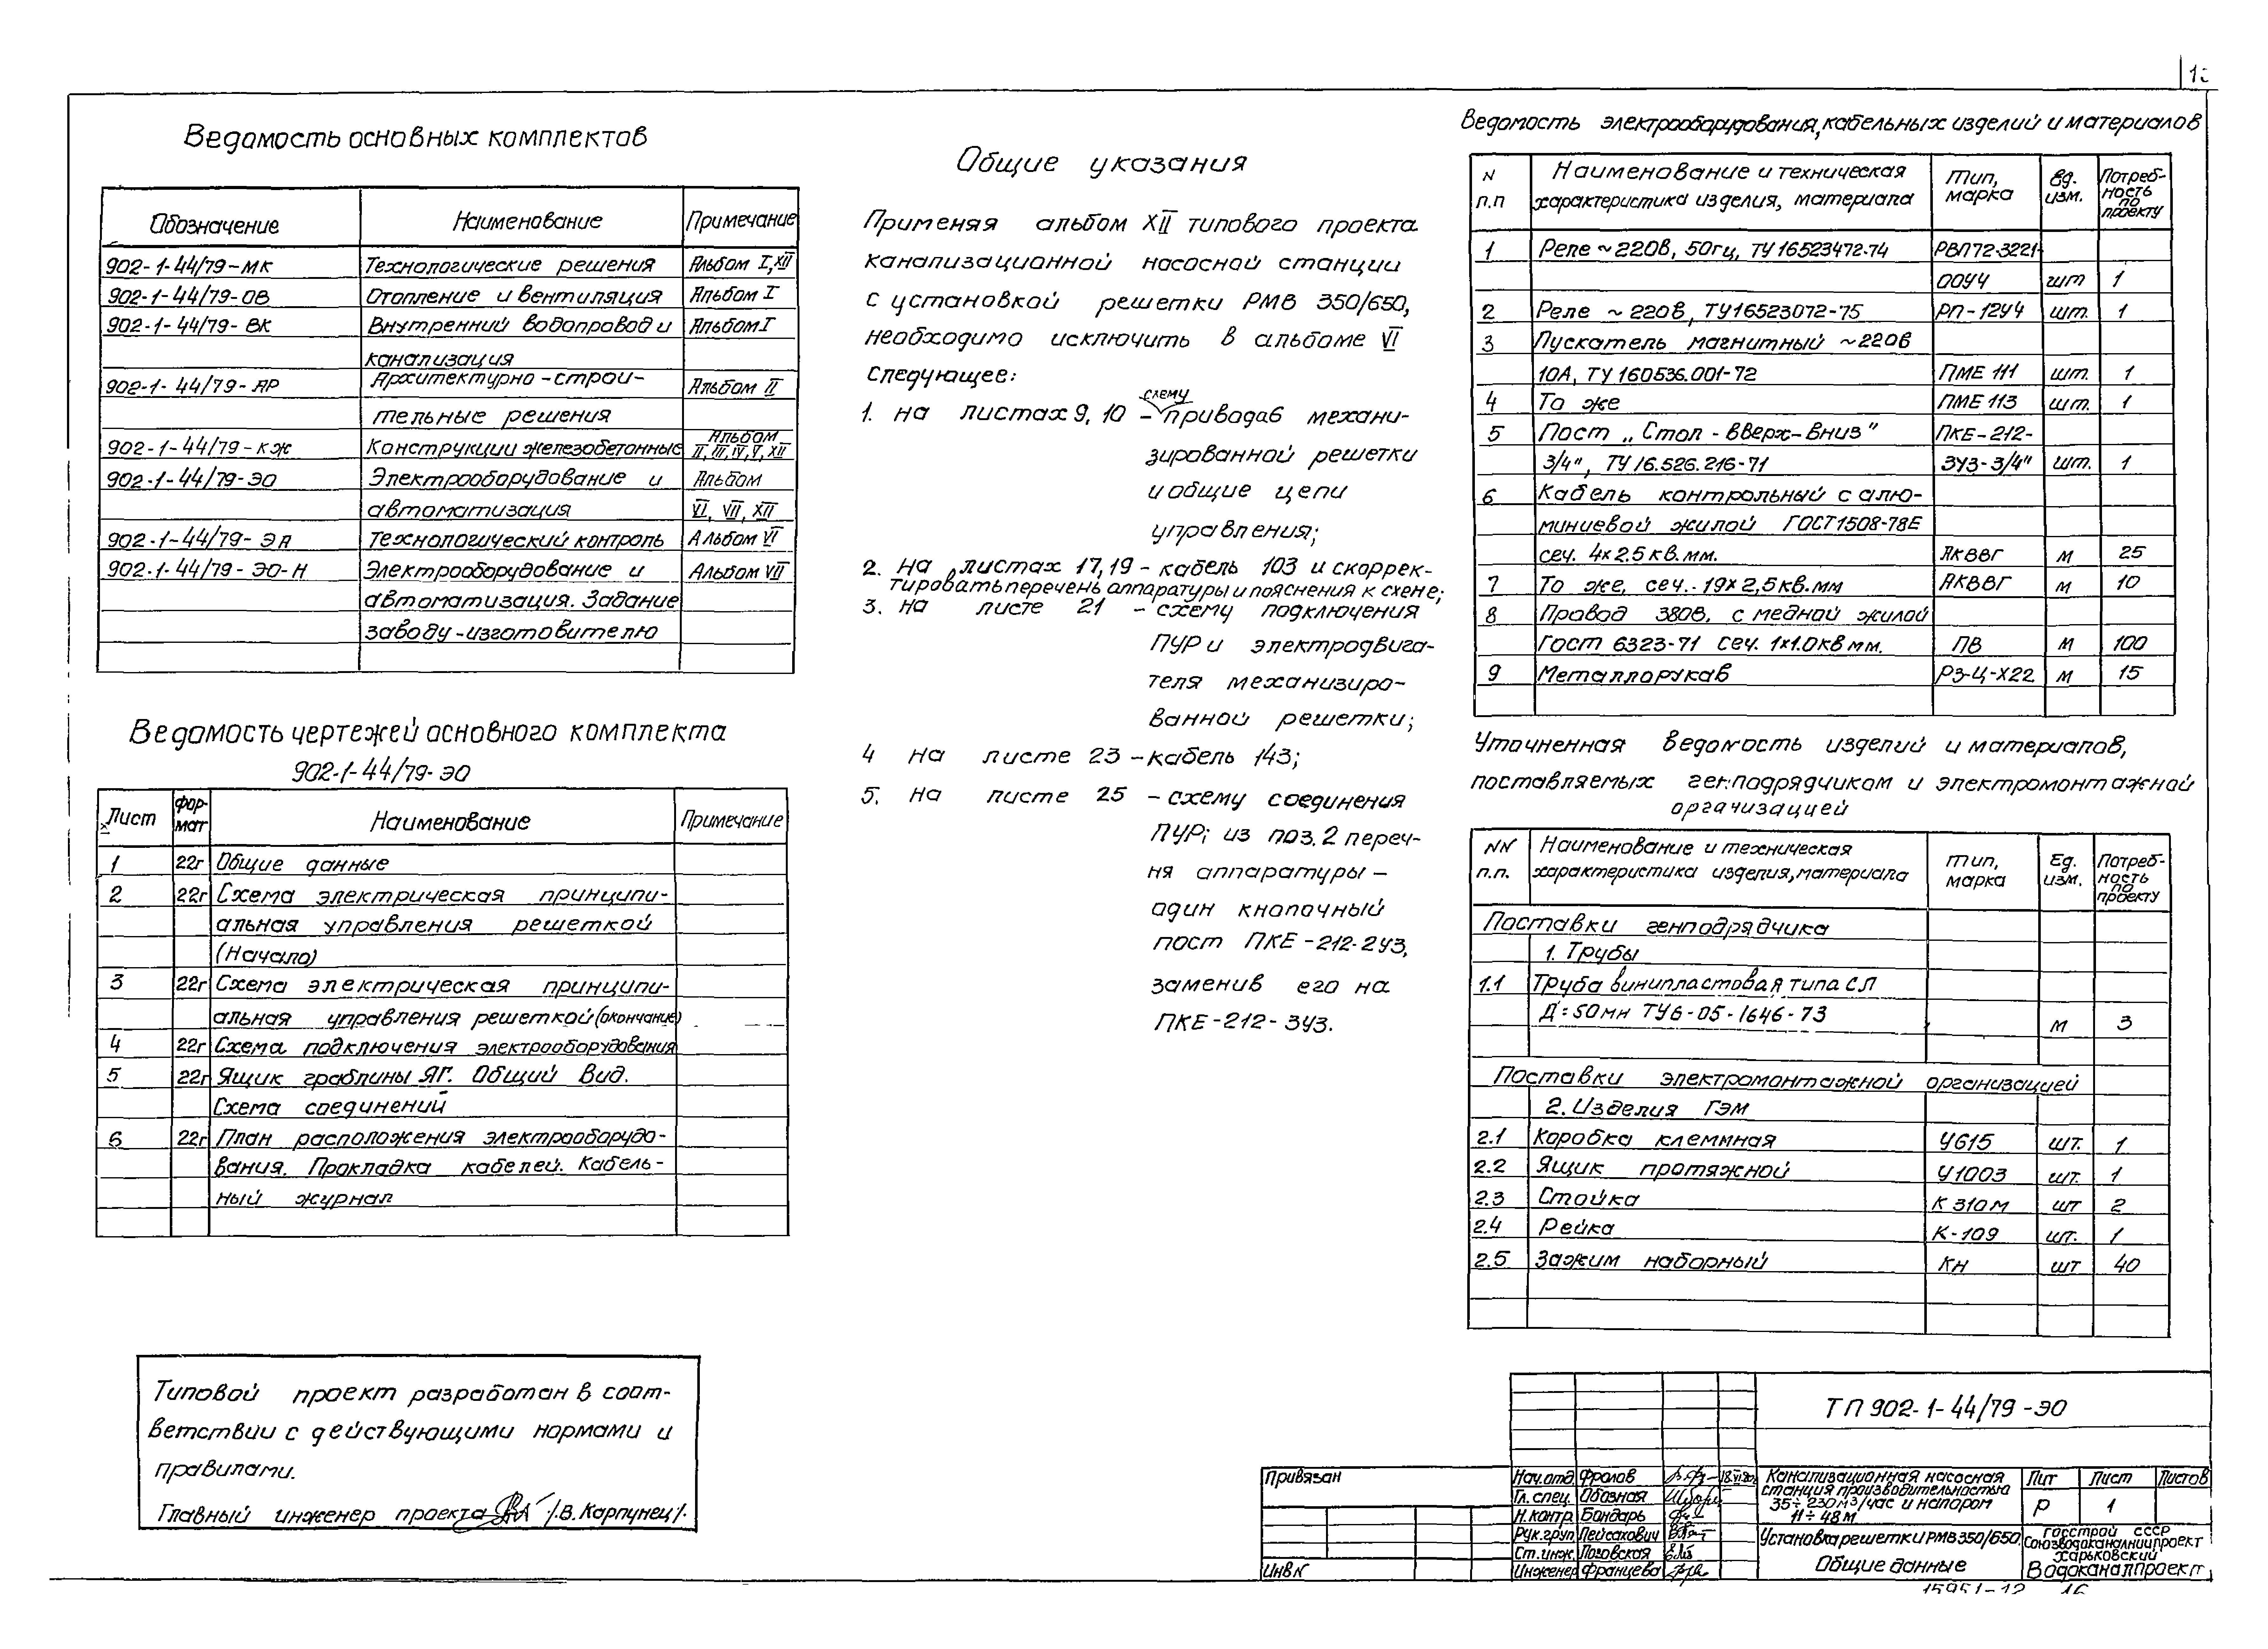 Ведомость основных комплектов
Обозначение Наименование Примечание
902-1-44/79-МК Технологические решения Альбом I, XII
902-1-44/79-ОВ Отопление и вентиляция Альбом I
902-1-44/79-ВК Внутренний водопровод и Альбом I
канализация
902-1-44/79-АР Архитектурно-строи- Альбом II
тельные решения
902-1-44/79-КЖ Конструкции железобетонные Альбом II, III, IV, V, XII
902-1-44/79-ЭО Электрооборудование и Альбом
автоматизация VI, VII, XII
902-1-44/79-ЭА Технологический контроль Альбом VI
902-1-44/79-ЭО-Н Электрооборудование и Альбом VII
автоматизация. Задание
заводу-изготовителю
Ведомость чертежей основного комплекта
902-1-44/79-ЭО
Лист фор-мат Наименование Примечание
1 22г Общие данные
2 22г Схема электрическая принципи-
альная управления решеткой
(Начало)
3 22г Схема электрическая принципи-
альная управления решеткой (окончание)
4 22г Схема подключения электрооборудования
5 22г Ящик граблины ЯГ. Общий Вид.
Схема соединений
6 22г План расположения электрооборудо-
вания. Прокладка кабелей. Кабель-
ный журнал
Типовой проект разработан в соот-
ветствии с действующими нормами и
правилами.
Главный инженер проекта /.В. Карпунец/.
Общие указания
Применяя альбом XII типового проекта
канализационной насосной станции
с установкой решетки РМВ 350/650,
необходимо исключить в альбоме VI
следующее:
1. на листах 9, 10 – схему приводов механи-
зированной решетки
и общие цепи
управления;
2. на листах 17, 19 – кабель 103 и скоррек-
тировать перечень аппаратуры и пояснения к схеме;
3. на листе 21 – схему подключения
ПУР и электродвига-
теля механизиро-
ванной решетки;
4 на листе 23 – кабель 143;
5. на листе 25 – схему соединения
ПУР; из поз. 2 переч-
ня аппаратуры –
один кнопочный
пост ПКЕ-212-2У3,
заменив его на
ПКЕ-212-3У3.
Ведомость электрооборудования, кабельных изделий и материалов
N п.п Наименование и техническая характеристика изделия, материала Тип, марка Ед. изм. Потреб-ность по проекту
1 Реле ~220в, 50гц, ТУ 16523472-74 РВП72-3221-
00У4 шт 1
2 Реле ~220в, ТУ16523072-75 РП-12У4 шт. 1
3 Пускатель магнитный ~220в
10А, ТУ 160536.001-72 ПМЕ 111 шт. 1
4 То же ПМЕ 113 шт. 1
5 Пост „Стоп-вверх-вниз" ПКЕ-212-
3/4", ТУ 16.526.216-71 3У3-3/4" шт. 1
6 Кабель контрольный с алю-
миниевой жилой ГОСТ1508-78Е
сеч. 4х2.5 кв.мм. АКВВГ м 25
7 То же, сеч. 19х2,5кв.мм АКВВГ м 10
8 Провод 380В, с медной жилой
Гост 6323-71 сеч. 1х1.0 кв мм. ПВ м 100
9 Металлорукав РЗ-Ц-Х22 м 15
Уточненная ведомость изделий и материалов,
поставляемых генподрядчиком и электромонтажной
организацией
NN п.п. Наименование и техническая характеристика изделия, материала Тип, марка Ед. изм. Потреб-ность по проекту
Поставки генподрядчика
1. Трубы
1.1 Труба винипластовая типа СЛ
Д=50мм ТУ6-05-1646-73 м 3
Поставки электромонтажной организацией
2. Изделия ГЭМ
2.1 Коробка клеммная У615 шт. 1
2.2 Ящик протяжной У1003 шт. 1
2.3 Стойка К 310М шт 2
2.4 Рейка К-109 шт. 1
2.5 Зажим наборный КН шт 40
ТП 902-1-44/79-ЭО
Привязан
Инв N
Нач.отд Фролов 18.VI.80
Гл. спец. Обозная
Н.контр Бондарь
Рук.груп Пейсахович
Ст.инж. Лозовская
Инженер Францева
Канализационная насосная
станция производительностью
35÷230м³/час и напором
11÷48м
Лит Лист Листов
Р 1
Установка решетки РМВ350/650.
Общие данные
Госстрой СССР
Союзводоканалниипроект
Харьковский
Водоканалпроект
15951-12 16